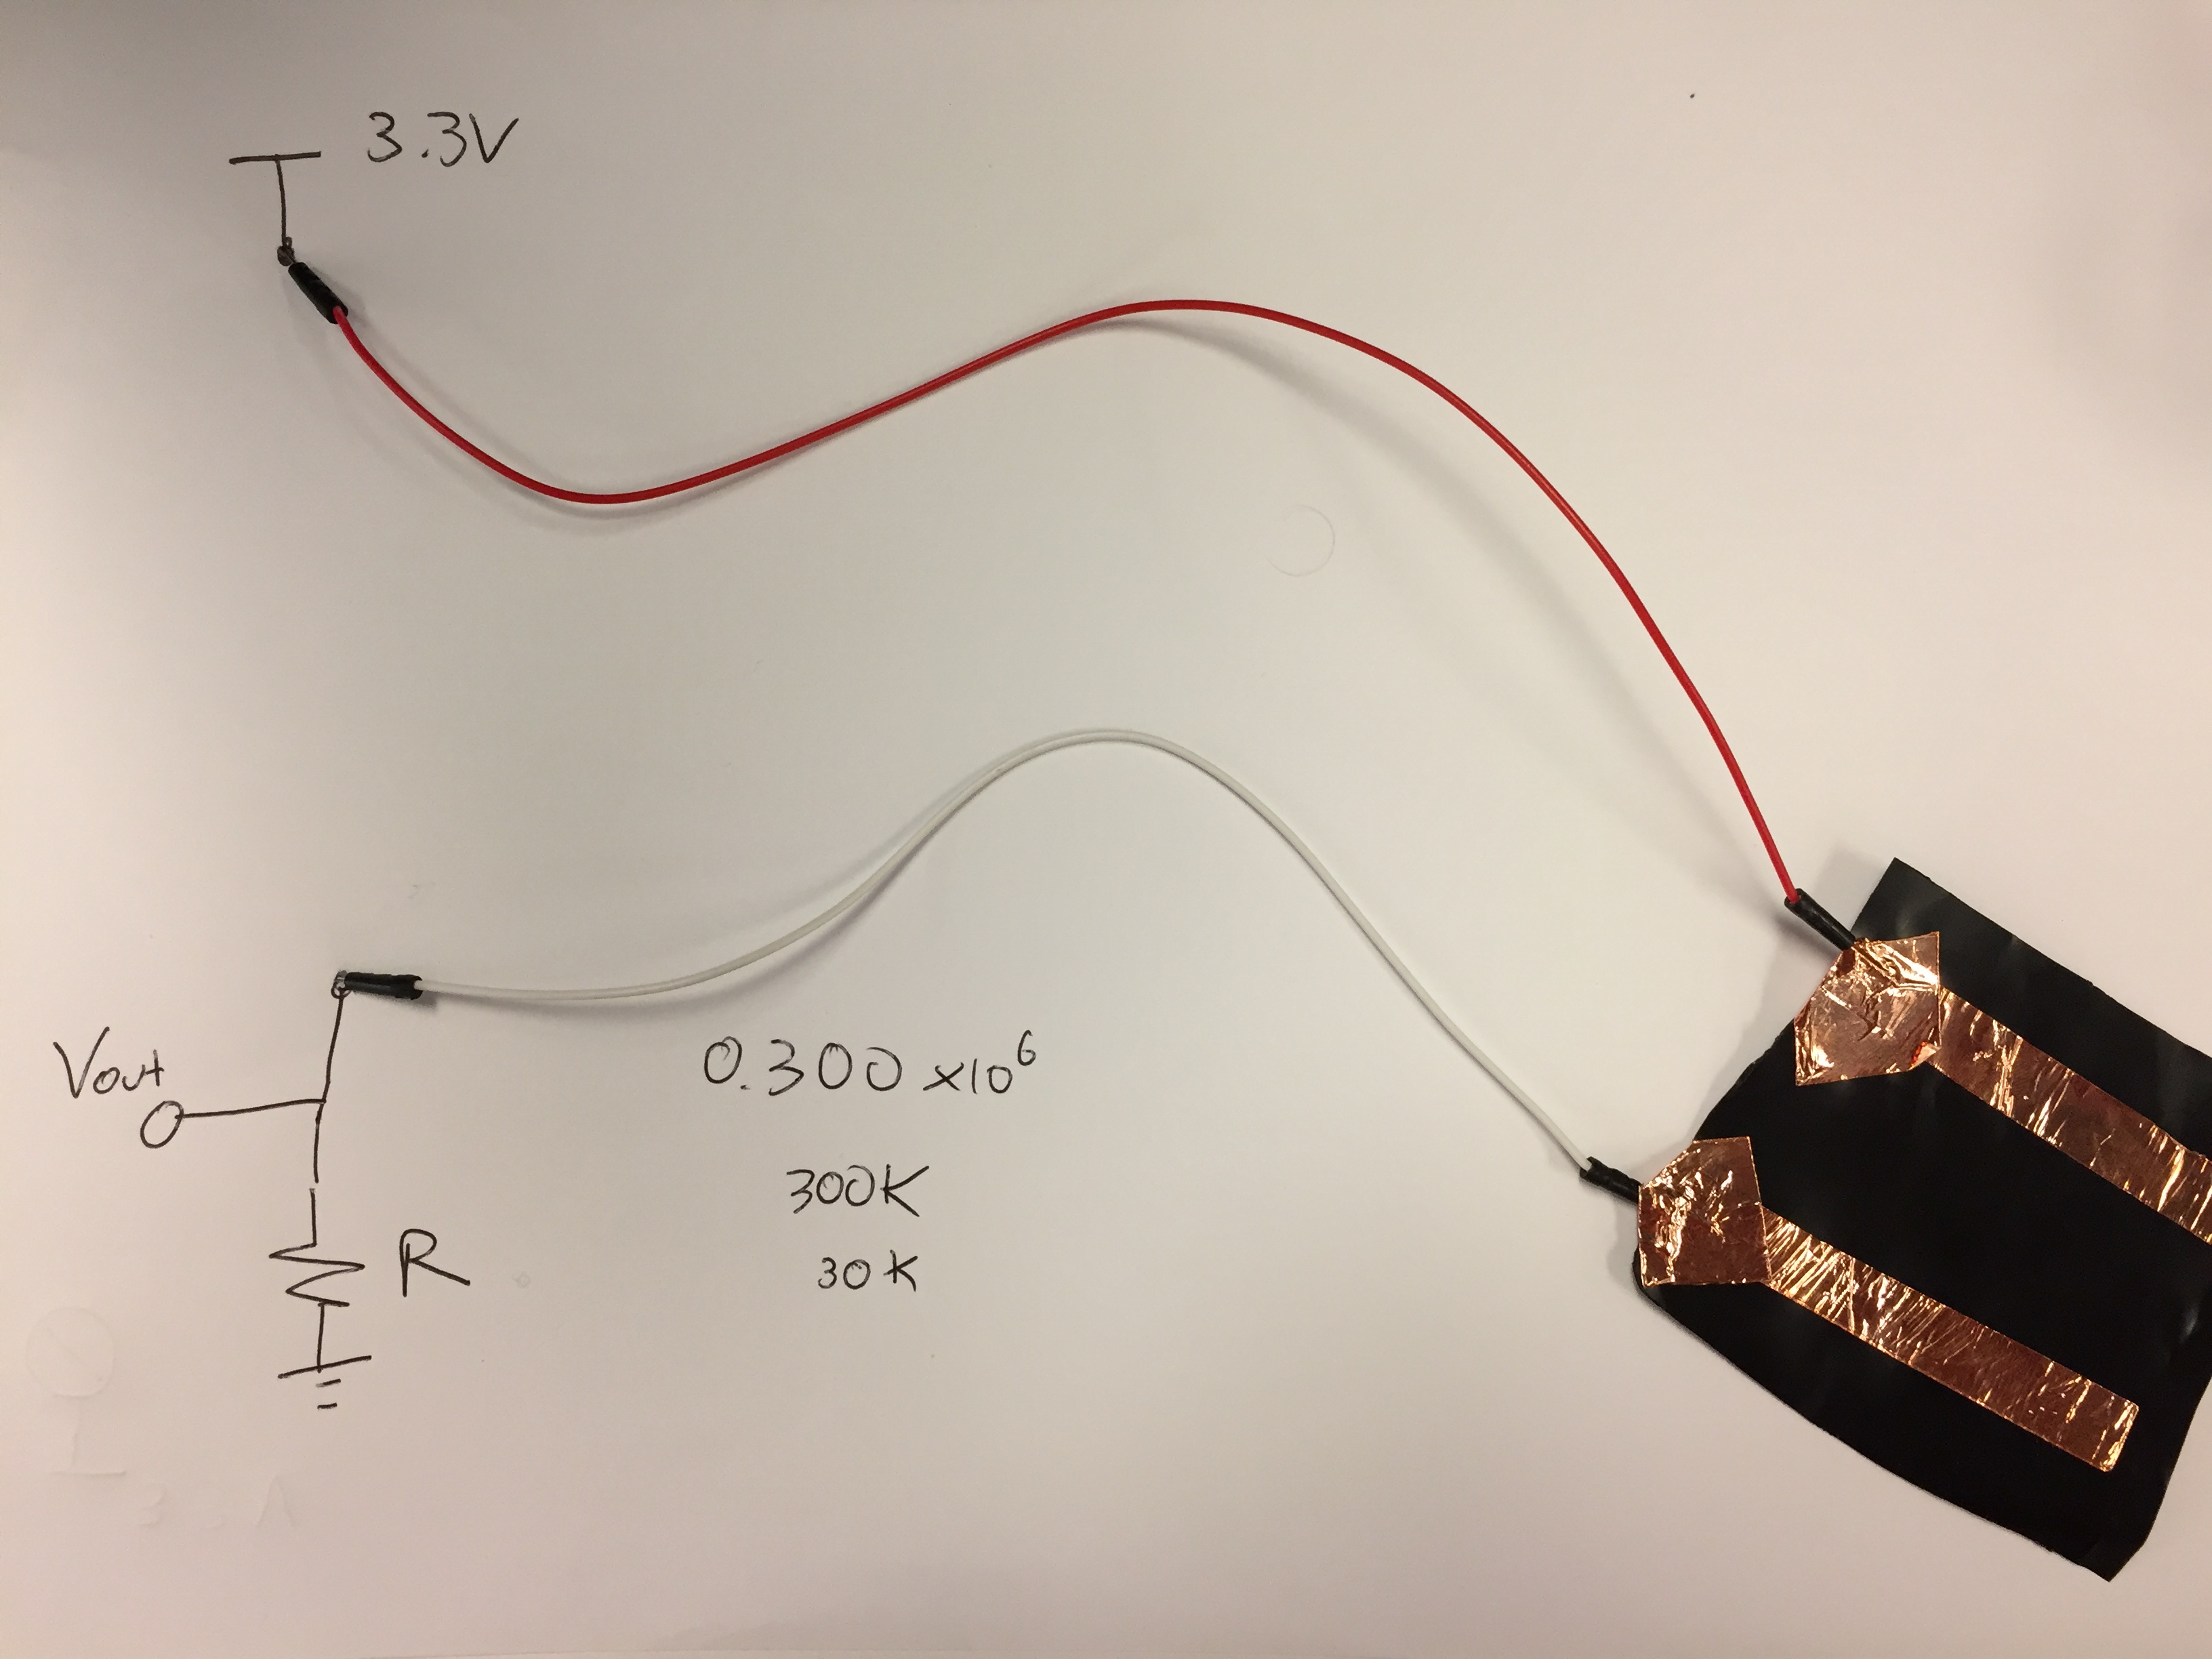 3.3V
Vout
0.300 x10⁶
300K
R
30K